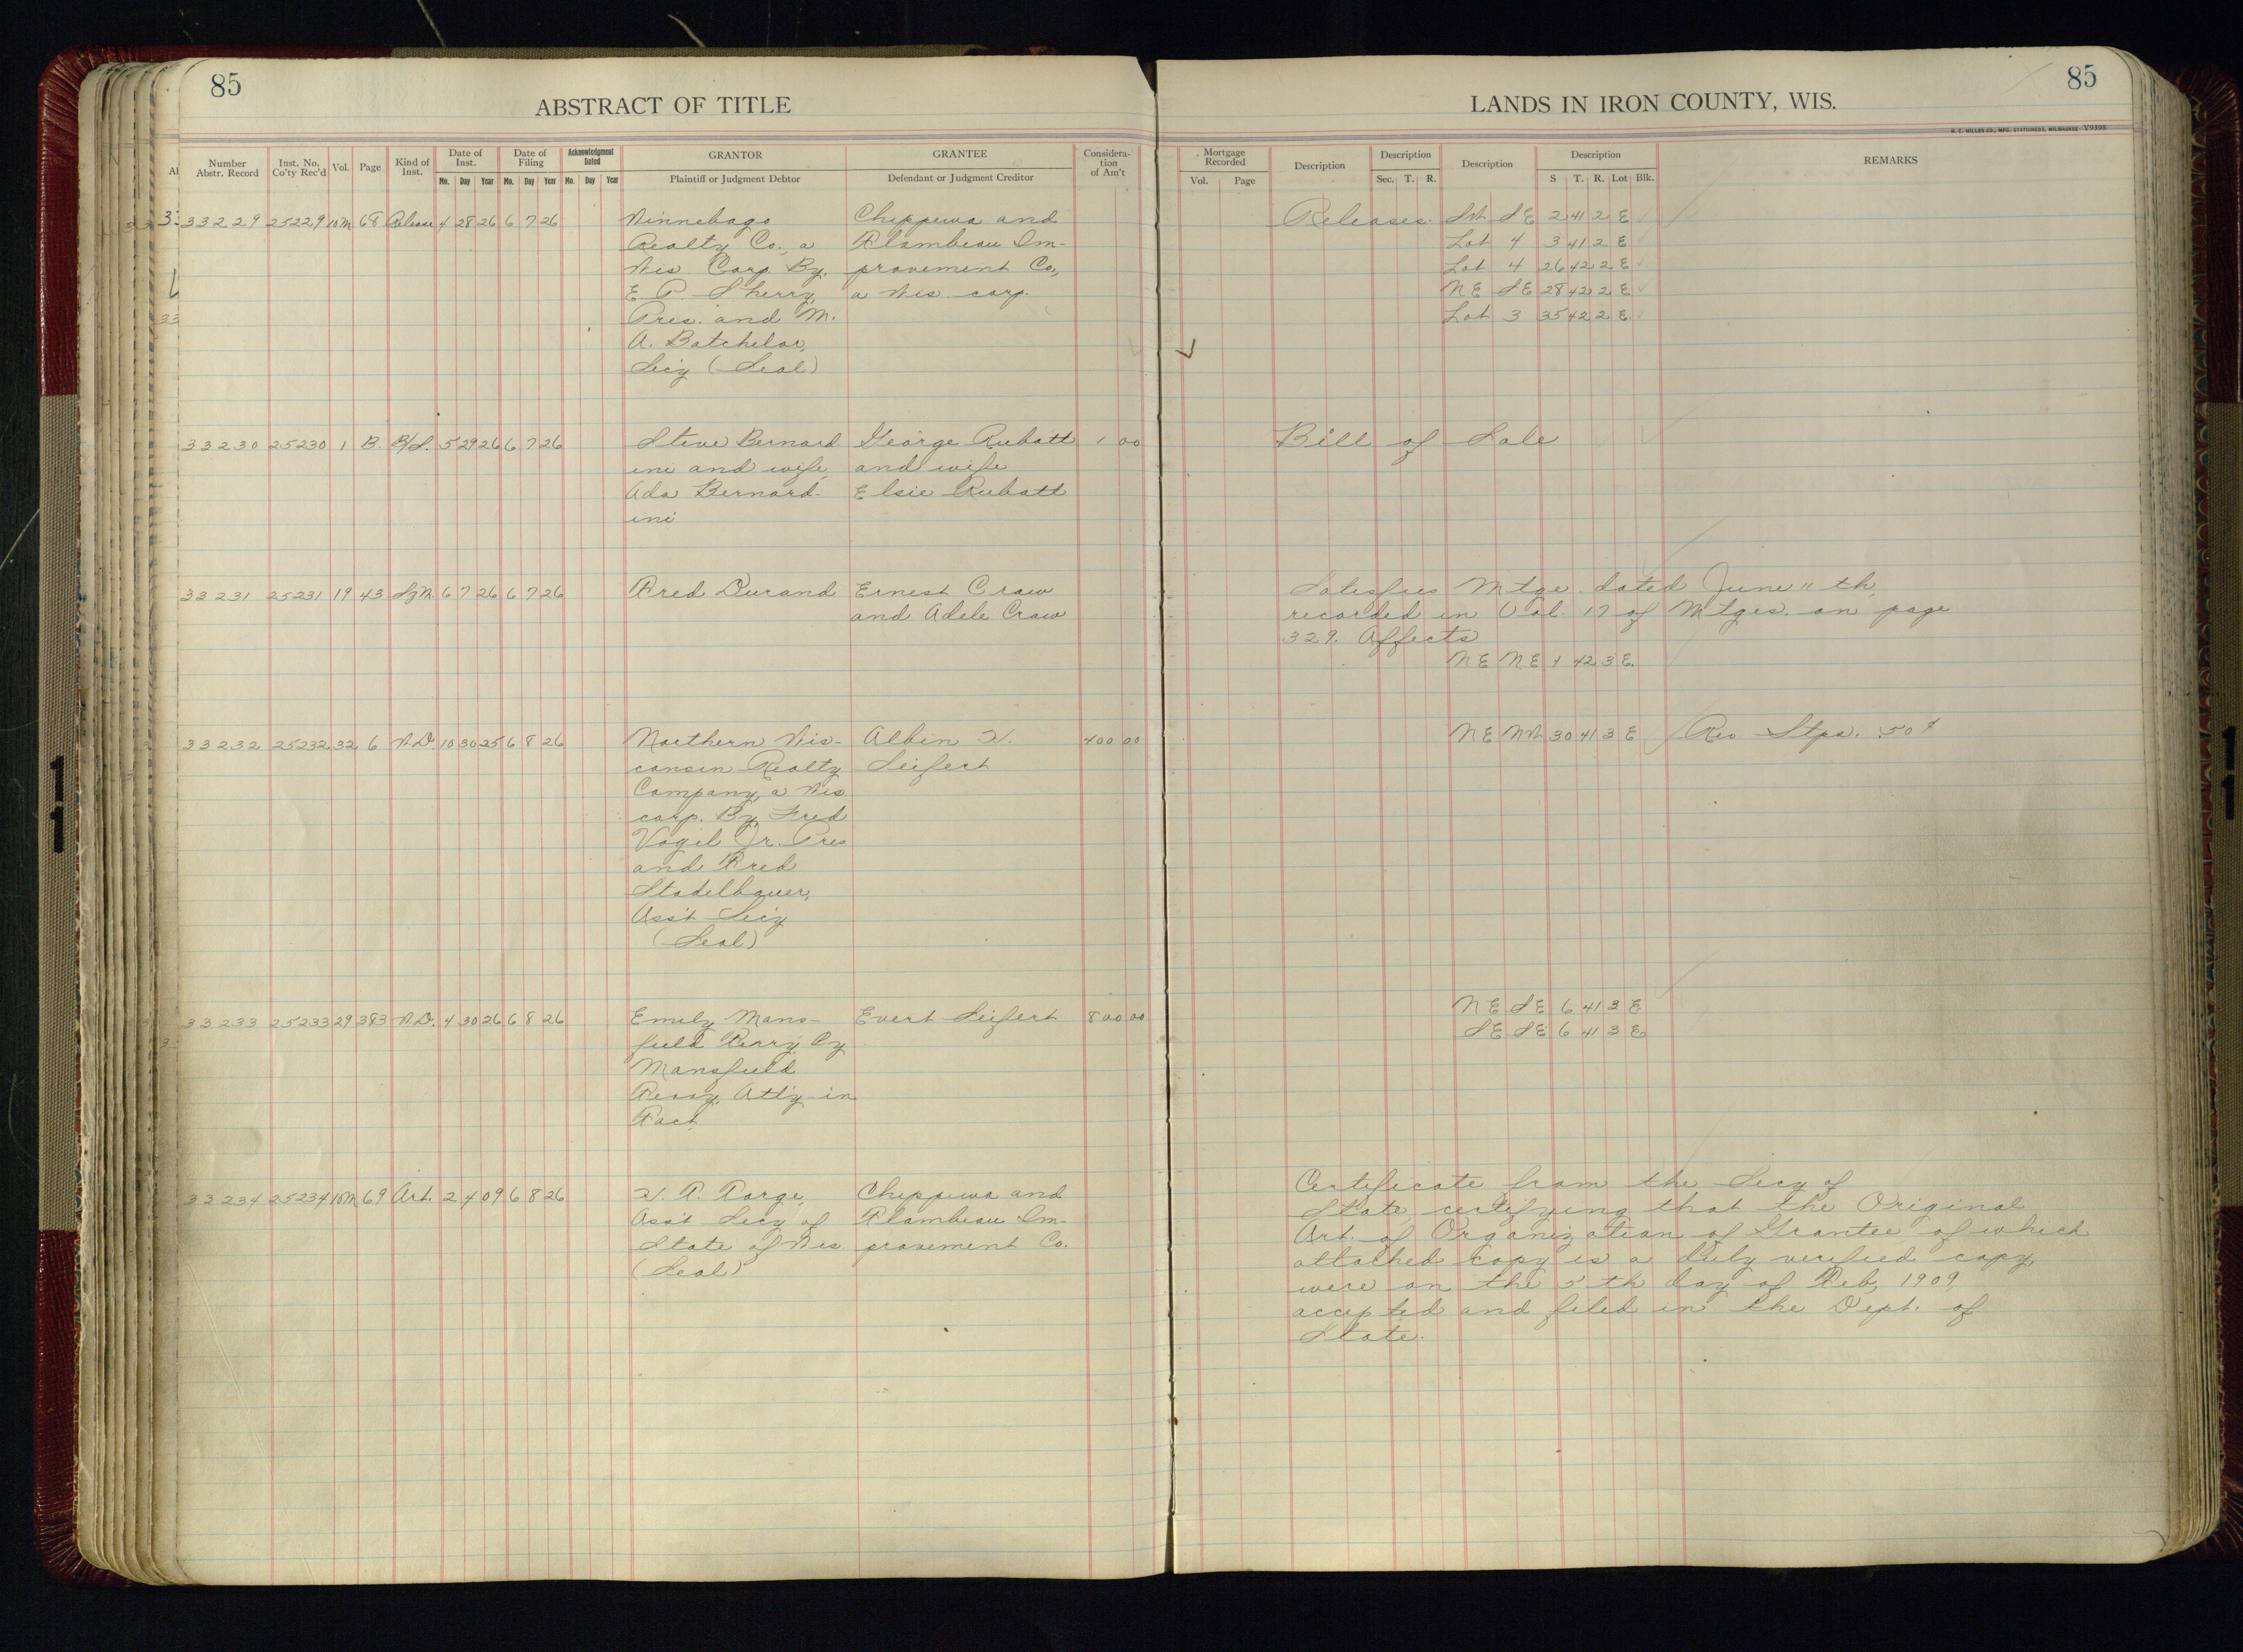 85
ABSTRACT OF TITLE
Number Abstr. Record
Inst. No. Co'ty Rec'd
Vol.
Page
Kind of Inst.
Date of Inst.
Mo. Day Year
Date of Filing
Mo. Day Year
Acknowledgment Dated
Mo. Day Year
GRANTOR
Plaintiff or Judgment Debtor
GRANTEE
Defendant or Judgment Creditor
Considera-
tion
of Am't
33229 25229 10M 68 Release 4 28 26 6 7 26 Winnebago Chippewa and
Realty Co., a Flambeau Im-
Wis Corp. By, provement Co.,
E. P. Sherry, a Wis corp.
Pres. and M.
A. Batchelor,
Sec'y (Seal)
33230 25230 1 B. B/S. 5 29 26 6 7 26 Steve Bernard George Rubatt 1 00
ini and wife, and wife
Ada Bernard- Elsie Rubatt
ini
33231 25231 19 43 6 7 26 6 7 26 Fred Durand Ernest Craw
and Adele Craw
33232 25232 32 6 W.D. 10 30 25 6 8 26 Northern Wis- Albin 400 00
consin Realty Seifert
Company, a Wis
corp. By, Fred
Vogel Jr. Pres
and Fred
Stadelbauer,
Ass't Sec'y
(Seal)
33233 25233 29 383 W.D. 4 30 26 6 8 26 Emily Mans- Evert Seifert 800 00
field Perry, by
Mansfield
Perry, Att'y-in
Fact
33234 25234 10M 69 Art. 2 4 09 6 8 26 Chippewa and
Ass't Secy of Flambeau Im-
State of Wis provement Co.
(Seal)
LANDS IN IRON COUNTY, WIS.
85
H. C. MILLER CO., MFG. STATIONERS, MILWAUKEE Y9398
Mortgage Recorded
Vol. Page
Description
Description
Sec. T. R.
Description
Description
S T. R. Lot Blk.
REMARKS
Releases. SW SE 2 41 2 E
Lot 4 3 41 2 E
Lot 4 26 42 2 E
NE SE 28 42 2 E
Lot 3 35 42 2 E
Bill of Sale
Satisfies Mtge. dated June 11 th,
recorded in Vol. 17 of Mtges. on page
329. Affects
NE NE 42 3 E.
NE NW 30 41 3 E Rev Stps. .50¢
NE SE 6 41 3 E
SE SE 6 41 3 E
Certificate from the Secy of
State, certifying that the Original
Art. of Organization of Grantee of which
attached copy is a duly verified copy,
were on the th day of Feb, 1909
accepted and filed in the Dept. of
State.